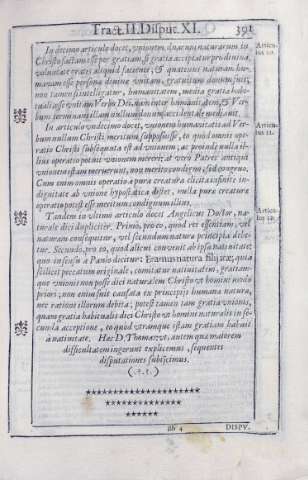 Tract. II. Disput. XI. 391
In decimo articulo docet, vnionem duarum naturarum in
Christo factam esse per gratiam, si gratia accipiatur pro diuina
voluntate gratis aliquid faciente, & quatenus naturam hu-
manam esse personæ diuinæ vnitam, gratuitum donum fuit;
non tamen si intelligatur, humanitatem, media gratia habi-
tuali esse vnitam Verbo Dei, nam inter humanitatem, & Ver-
bum terminantem illam nullum donum accidentale mediauit.
In articulo vndecimo docet, vnionem humanitatis ad Ver-
bum nullum Christi meritum supposuisse, eo quod omnis ope-
ratio Christi subsequuta est ad vnionem; ac proinde nulla il-
lius operatio potuit vnionem mereri: at verò Patres antiqui
vnionem istam meruerunt, non merito condigno, sed congruo.
Cum enim omnis operatio a pura creatura elicita infinite in
dignitate ab vnione hypostatica distet, nulla puræ creaturæ
operatio potest esse meritum condignum illius.
Tandem in vltimo articulo docet Angelicus Doctor, na-
turale dici dupliciter. Primò, pro eo, quod rei essentiam, vel
naturam consequitur, vel secundum naturæ principia debe-
tur. Secundò, pro eo, quod alicui conuenit ab ipsa natiuitate;
quo in sensu a Paulo dicitur: Eramus natura filij iræ; quia
scilicet peccatum originale, comitatur natiuitatem, gratiam-
que vnionis non posse dici naturalem Christo vt homini modo
priori; non enim fuit causata ex principijs humanæ naturæ,
nec ratione illorum debita; potest tamen tam gratia vnionis,
quam gratia habitualis dici Christo vt homini naturalis in se-
cunda acceptione, eo quod vtramque istam gratiam habuit
à natiuitate. Hæc D. Thomas: vt autem quæ maiorem
difficultatem ingerunt explicemus, sequentes
disputationes subijcimus.
(.?.)
Articu-
lus 10.
Articu-
lus 11.
Articu-
lus 12.
Bb 4 DISPV.